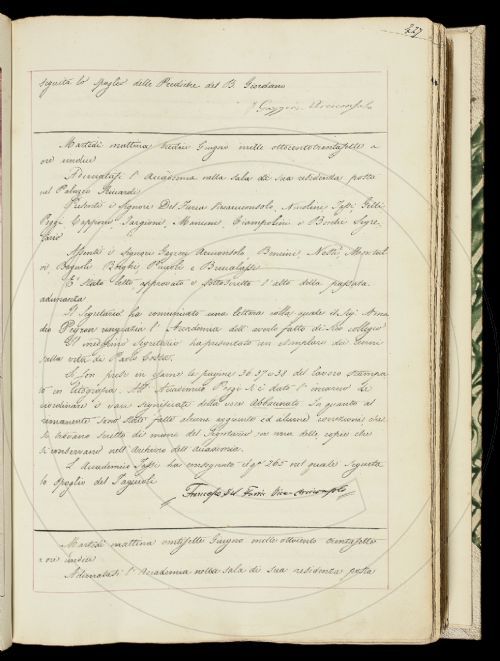 227
seguita lo spoglio delle Prediche del B. Giordano
Gazzeri Arciconsolo
Martedì mattina tredici Giugno mille ottocentotrentasette a
ore undici
Adunatasi l'Accademia nella Sala di sua residenza posta
nel Palazzo Riccardi
Presenti i Signori Del Furia Vicearciconsolo, Niccolini, Tassi, Gelli
Poggi Capponi, Targioni, Manuzzi, Ciampolini e Bencini Segre-
tario
Assenti i signori Gazzeri Arciconsolo, Bencini, Nesti,
Bagnoli Borghi, Puccioli e Brucalassi
E' stato letto approvato e sottoscritto l'atto della passata
adunanza
Il Segretario ha comunicato una lettera colla quale il Sig. Ame
deo Peyron ringrazia l'Accademia dell'averlo fatto di suo collegio
Il medesimo Segretario ha presentato un esemplare dei Cenni
sulla vita di Paolo Costa.
Si son prese in esame le pagine 36 37 e 38 del lavoro stampa
to in Litografia. All'Accademico Poggi si è dato l'incarico di
riordinare i varj significati della voce Abbacinato. In quanto al
rimanente sono state fatte alcune aggiunte ed alcune correzioni che
si trovano scritte di mano del Segretario in una delle copie che
si conservano nell'Archivio dell'Accademia.
L'Accademico Tassi ha consegnato il q.° 265 nel quale seguita
lo spoglio del
Francesco Del Furia Vice-Arciconsolo
Martedì mattina ventisette Giugno mille ottocento trentasette
a ore undici
Adunatasi l'Accademia nella sala di sua residenza posta